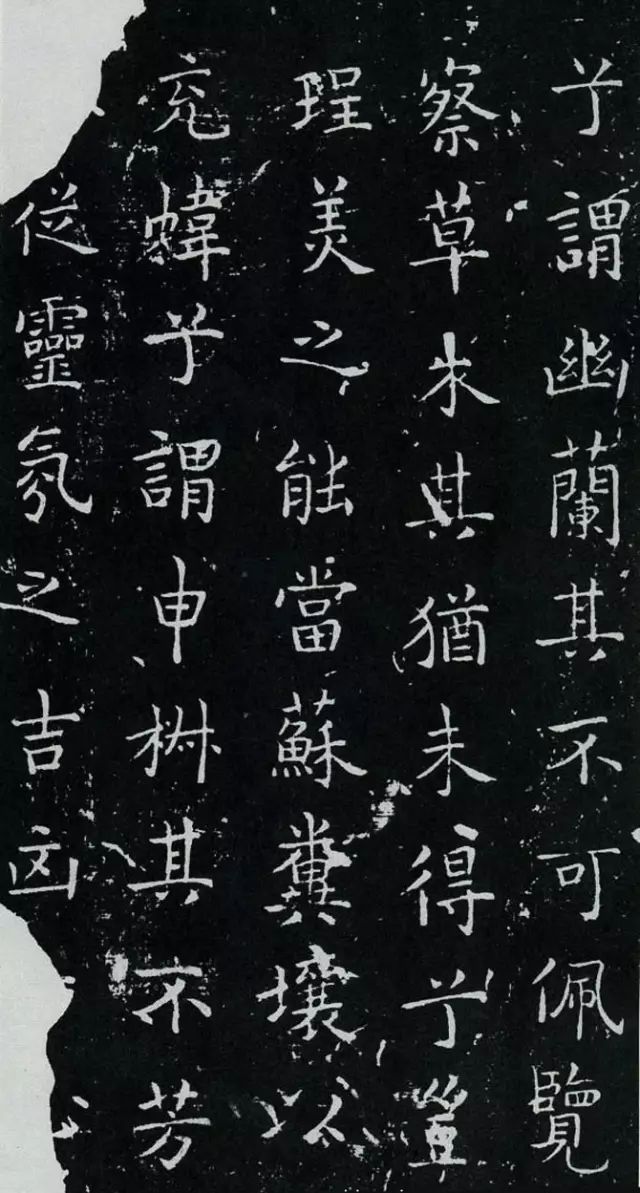 兮謂幽蘭其不可佩覽
察草木其猶未得兮豈
珵美之能當蘇糞壤以
充幃兮謂申椒其不芳
從靈氛之吉占